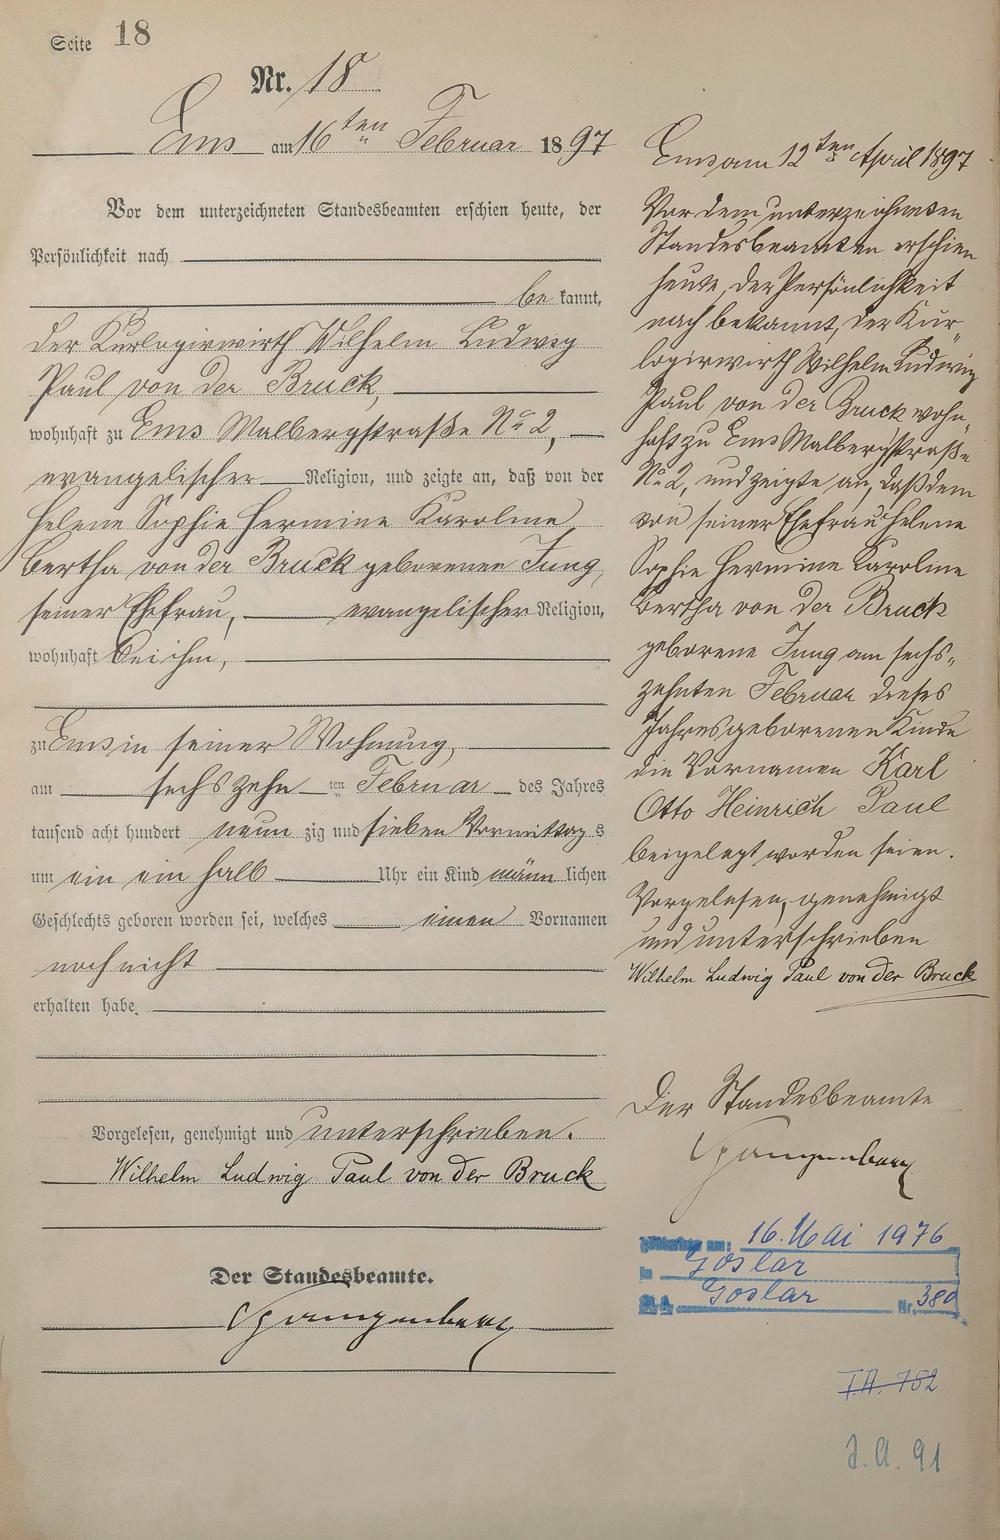 Seite 18
Nr. 18
Ems am 16ten Februar 1897
Vor dem unterzeichneten Standesbeamten erschien heute, der
Persönlichkeit nach
be kannt,
der Kurlogirwirth Wilhelm Ludwig
Paul von der Bruck,
wohnhaft zu Ems Malbergstraße No 2,
evangelischer Religion, und zeigte an, daß von der
Helene Sophie Hermine Karoline
Bertha von der Bruck geborenen Jung,
seiner Ehefrau, evangelischer Religion,
wohnhaft bei ihm,
zu Ems in seiner Wohnung,
am sechszehn ten Februar des Jahres
tausend acht hundert neun zig und sieben Vormittag s
um ein ein halb Uhr ein Kind männ lichen
Geschlechts geboren worden sei, welches einen Vornamen
noch nicht
erhalten habe.
Vorgelesen, genehmigt und unterschrieben.
Wilhelm Ludwig Paul von der Bruck
Der Standesbeamte.
Ems am 12ten April 1897
Vor dem unterzeichneten
Standesbeamten erschien
heute, der Persönlichkeit
nach bekannt, der Kur-
logirwirth Wilhelm Ludwig
Paul von der Bruck wohn-
haft zu Ems Malbergstraße
No 2, und zeigte an, daß dem
von seiner Ehefrau Helene
Sophie Hermine Karoline
Bertha von der Bruck
geborene Jung am sechs-
zehnten Februar dieses
Jahres geborenen Kinde
die Vornamen Karl
Otto Heinrich Paul
beigelegt worden seien.
Vorgelesen, genehmigt
und unterschrieben
Wilhelm Ludwig Paul von der Bruck
Der Standesbeamte
am: 16. Mai 1976
in Goslar
Goslar Nr. 380
T.A. 752
J.A. 91